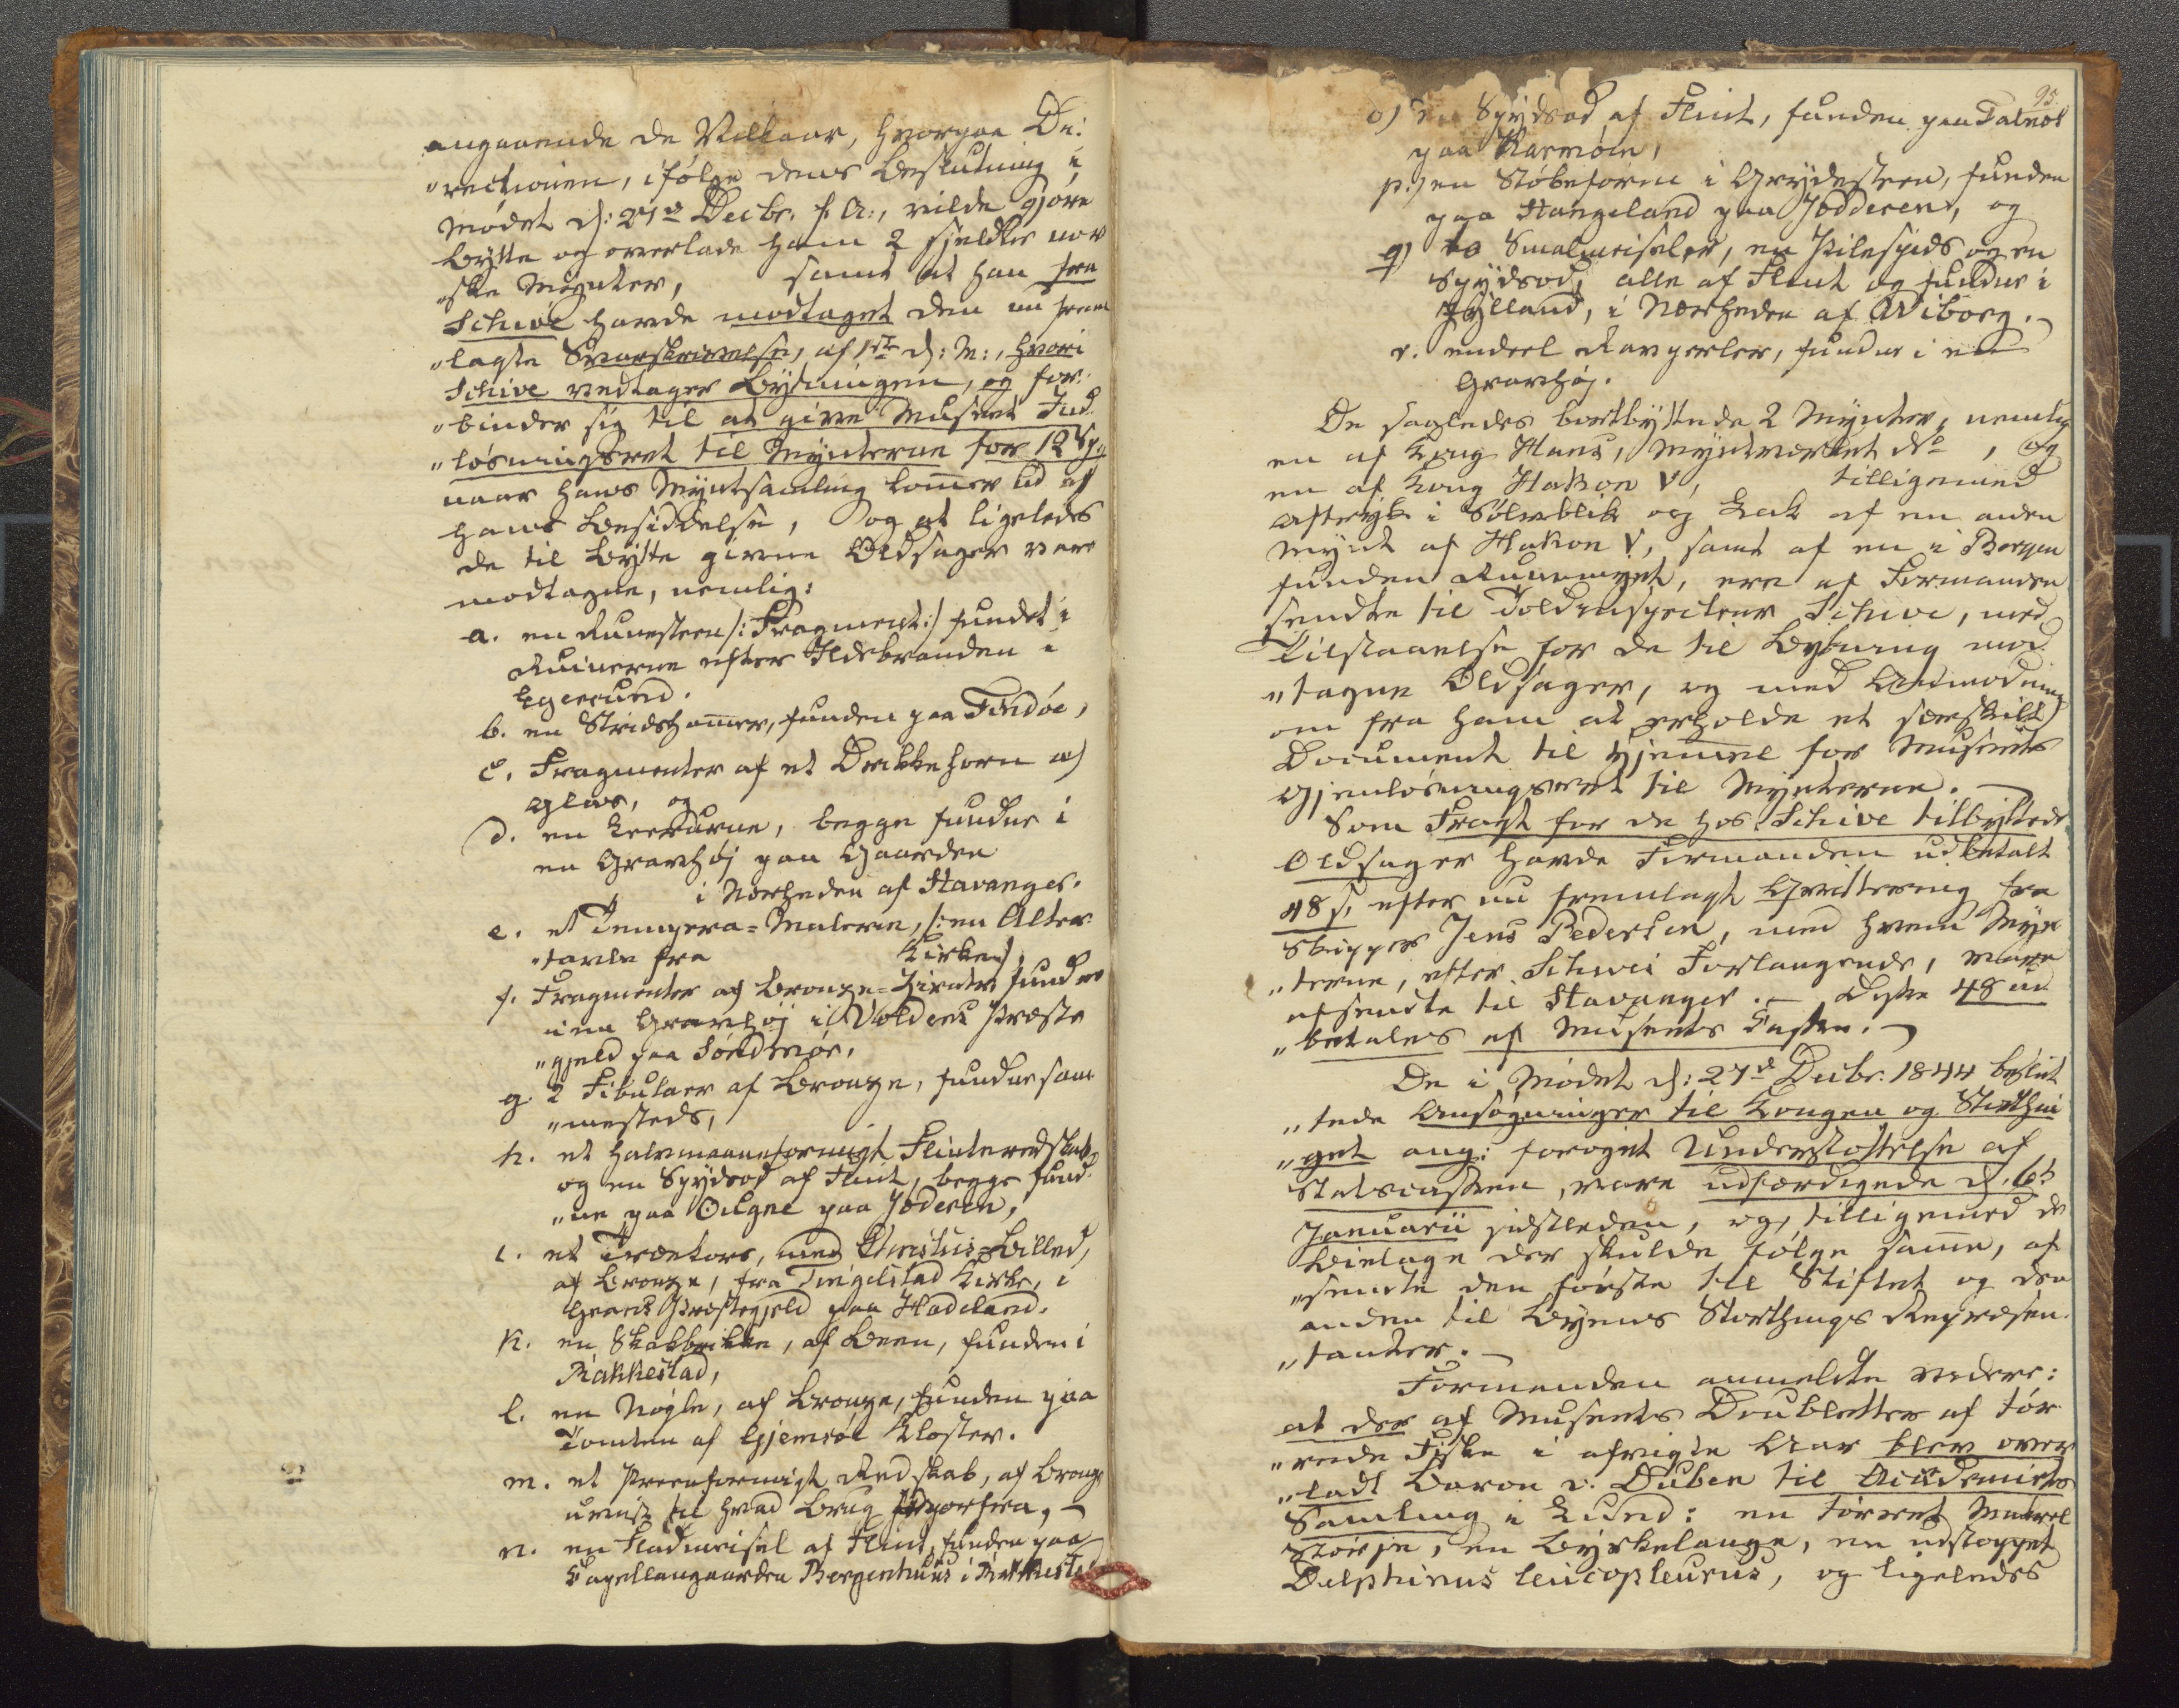 angaaende de Vilkaar, hvorpaa Di¬
„rectionen, ifølge dens Beslutning i
Mødet d: 27de Decbr. f. A:, vilde gjøre
Bytte og overlade ham 2 sjeldne nor
„ske Mynter, samt at han fra
Schive havde modtaget den nu frem
„lagte Svarskrivelse, af 1ste d: M:, hvori
Schive vedtager Bytningen, og for¬
„binder sig til at give Museet Ind¬
„løsningsret til Mynterne for 12 Sp.
naar hans Myntsamling kommer ud af
hans Besiddelse, og at ligeledes
de til Bytte givne Oldsager vare
modtagne, nemlig:
a. en Runesteen /: Fragment :/ fundet i
Ruinerne efter Ildebranden i
Egersund.
b. en Stridshammer, funden paa Findøe,
c. Fragmenter af et Drikkehorn af
Glas, og
d. en Leerurne, begge fundne i
en Gravhøj paa Gaarden
i Nærheden af Stavanger.
e. et Tempera-Malerie, /: en Alter
„tavle fra Kirken,
f. Fragmenter af Bronze-Zirater fundne
i en Gravhøj i Voldens Præste
„gjeld paa Søndmør,
g. 2 Fibulaer af Bronze, fundne sam
„mesteds,
h. et halvmaaneformigt Flinteredskab,
og en Spydsod af Flint, begge fund¬
„ne paa Ougne paa Jæderen,
i. et Trækors, med Christus-Billed,
af Bronze, fra Tingelstad Kirke, i
Grans Præstegjeld paa Hadeland.
k. en Skakbrikke, af Been, funden i
Rakkestad,
l. en Nøgle, af Bronze, funden paa
Tomten af Gjemsøe Kloster.
m. et Preenformigt Redskab, af Bronze
uvist til hvad Brug
n. en Fladmeisel af Flint, funden paa
Capellangaarden Bergenhuus i Rakkesta
95.
o) en Spydsod af Flint, funden paa Falnæs
paa Karmøen,
p.) en Støbeform i Grydesteen, funden
paa Stangeland paa Jædderen, og
q) to Smalmeisler, en Pilespids og en
Spydsod, alle af Flint og fundne i
Jylland, i Nærheden af Wiborg.
r. endeel Ravperler, fundne i en
Gravhøj.
De saaledes bortbyttede 2 Mynter, nemlig
en af Kong Hans, Myntværket No , og
en af Kong Hakon V, tilligemed
Aftryk i Sølvblik og Lak af en anden
Mynt af Hakon V, samt af en i Bergen
funden Runemynt, ere af Formanden
sendte til Toldinspecteur Schive, med
Tilstaaelse for de til Bytning mod¬
„tagne Oldsager, og med Anmodning
om fra ham at erholde et særskilt
Document til Hjemmel for Museets
Gjenløsningsret til Mynterne.
Som Fragt for de hos Schive tilbyttede
Oldsager havde Formanden udbetalt
48 s, efter nu fremlagt Qvittering fra
Skipper Jens Pedersen, med hvem Myn
„terne, efter Schives Forlangende, vare
afsendte til Stavanger. Disse 48 ud
„betales af Museets Casse.
De i Mødet d: 27de Decbr. 1844 beslut
„tede Ansøgninger til Kongen og Storthin
„get ang: forøget Understøttelse af
Statscassen, vare udfærdigede d. 6te
Januarii sidstleden, og, tilligemed de
Bielage der skulde følge samme, af
„sendte den første til Stiftet og den
anden til Byens Storthings Repræsen¬
„tanter.
Formanden anmeldte videre:
at der af Museets Doubletter af tør
„rede Fiske i afvigte Aar blev over
„ladt Baron v. Düben til Academiets
Samling i Lund: en tørret Makrel
Størje, en Byrkelange, en udstoppet
Delphinus leucopleurus, og ligeledes